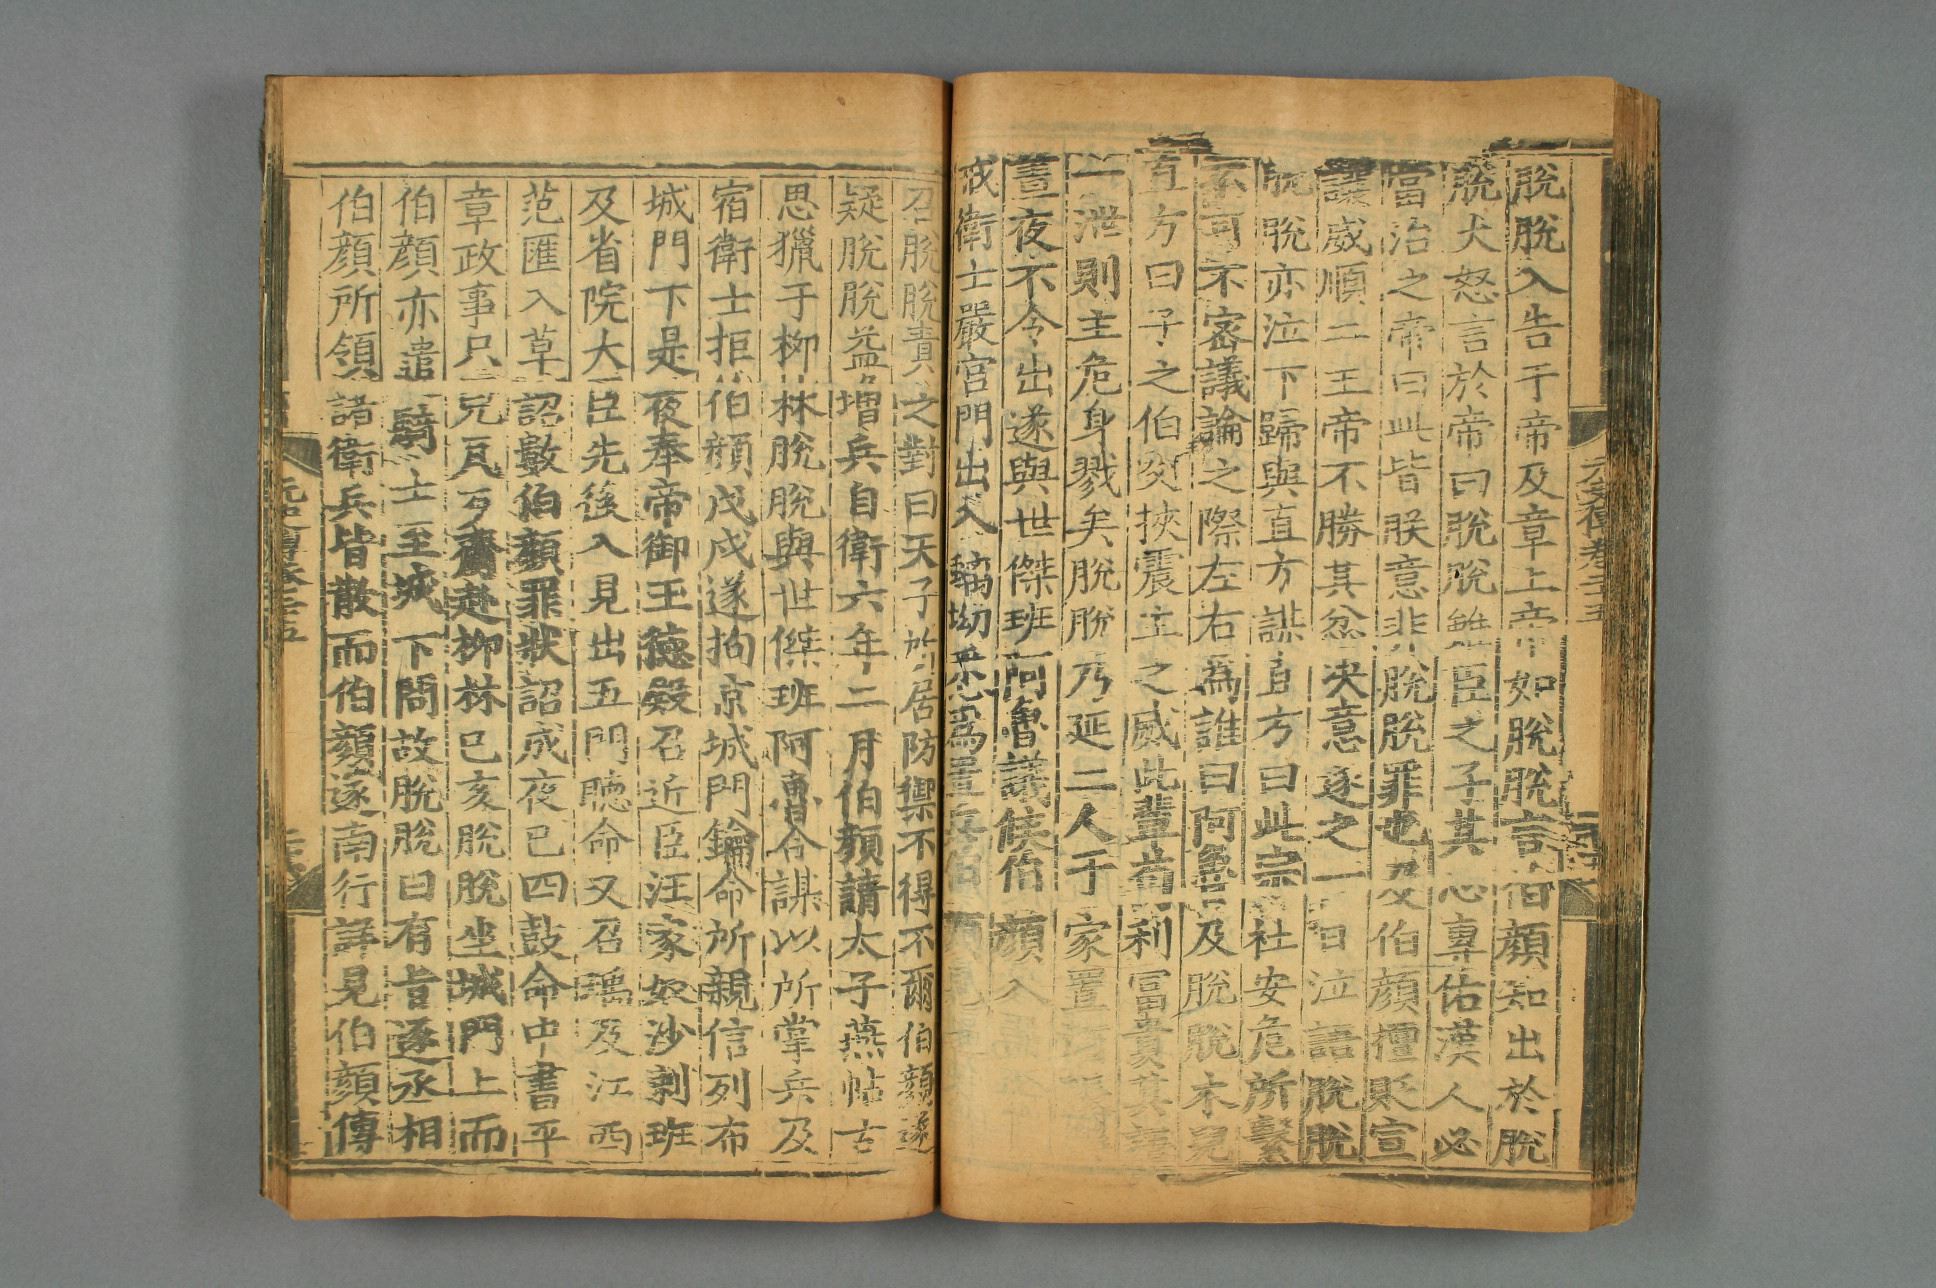 脫脫入告于帝及章上帝如脫脫言伯顏知出於脫
脫大怒言於帝曰脫脫雖臣之子其心專佑漢人必
當治之帝曰此皆朕意非脫脫罪也及伯顏擅貶宣
讓威順二王帝不勝其忿決意逐之一日泣語脫脫
脫脫亦泣下歸與直方謀直方曰此宗社安危所繫
不可不密議論之際左右為誰曰阿魯及脫脫木兒
直方曰子之伯父挾震主之威此輩苟利富貴其語
一泄則主危身戮矣脫脫乃延二人于家置
晝夜不令出遂與世傑班阿魯議候伯顏入
戒衛士嚴宮門出入螭坳悉為置兵伯顏見
召脫脫責之對曰天子所居防禦不得不爾伯顏遂
疑脫脫益增兵自衛六年二月伯顏請太子燕帖古
思獵于柳林脫脫與世傑班阿魯合謀以所掌兵及
宿衛士拒伯顏戊戌遂拘京城門鑰命所親信列布
城門下是夜奉帝御玉德殿召近臣汪家奴沙剌班
及省院大臣先後入見出五門聽命又召瑀及江西
范匯入草詔數伯顏罪狀詔成夜已四鼓命中書平
章政事只兒瓦歹齎赴柳林己亥脫脫坐城門上而
伯顏亦遣騎士至城下問故脫脫曰有旨逐丞相
伯顏所領諸衛兵皆散而伯顏遂南行詳見伯顏傳
元史傳卷二十五